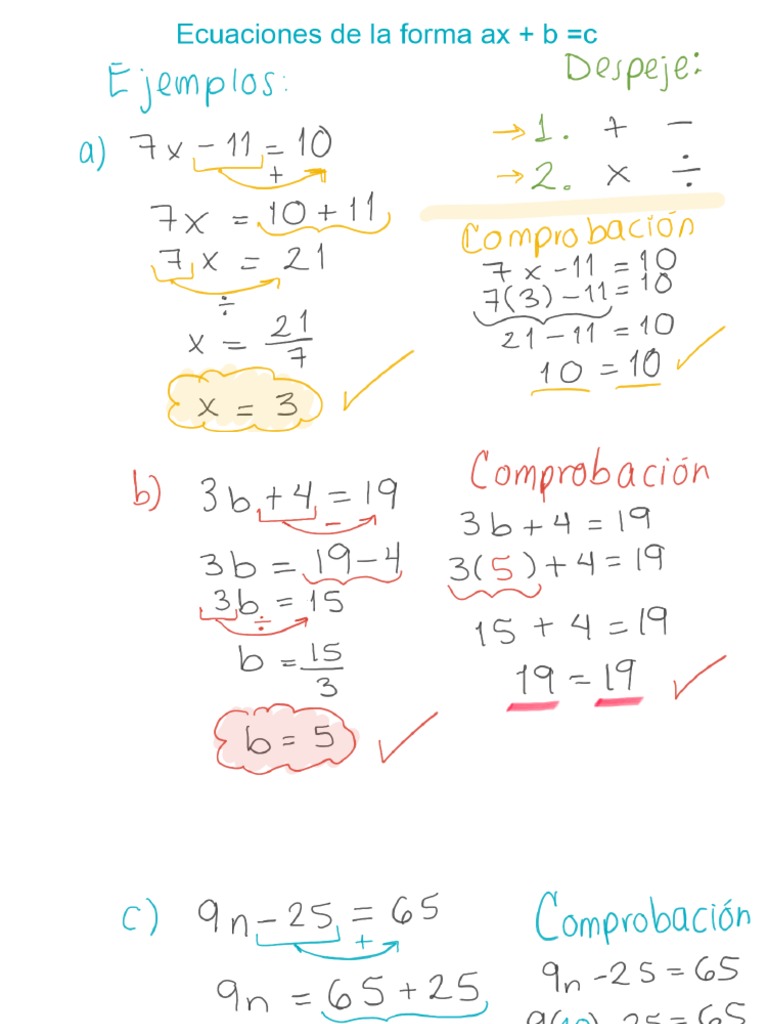 Ecuaciones de la forma ax + b =c
Ejemplos:
Despeje:
→ 1. + −
→ 2. x ÷
a) 7x − 11 = 10
+
7x = 10 + 11
7x = 21
÷
x = 21/7
x = 3 ✓
Comprobación
7x − 11 = 10
7(3) − 11 = 10
21 − 11 = 10
10 = 10 ✓
b) 3b + 4 = 19
−
3b = 19 − 4
3b = 15
÷
b = 15/3
b = 5 ✓
Comprobación
3b + 4 = 19
3(5) + 4 = 19
15 + 4 = 19
19 = 19 ✓
c) 9n − 25 = 65
+
9n = 65 + 25
Comprobación
9n − 25 = 65
9(10) − 25 = 65